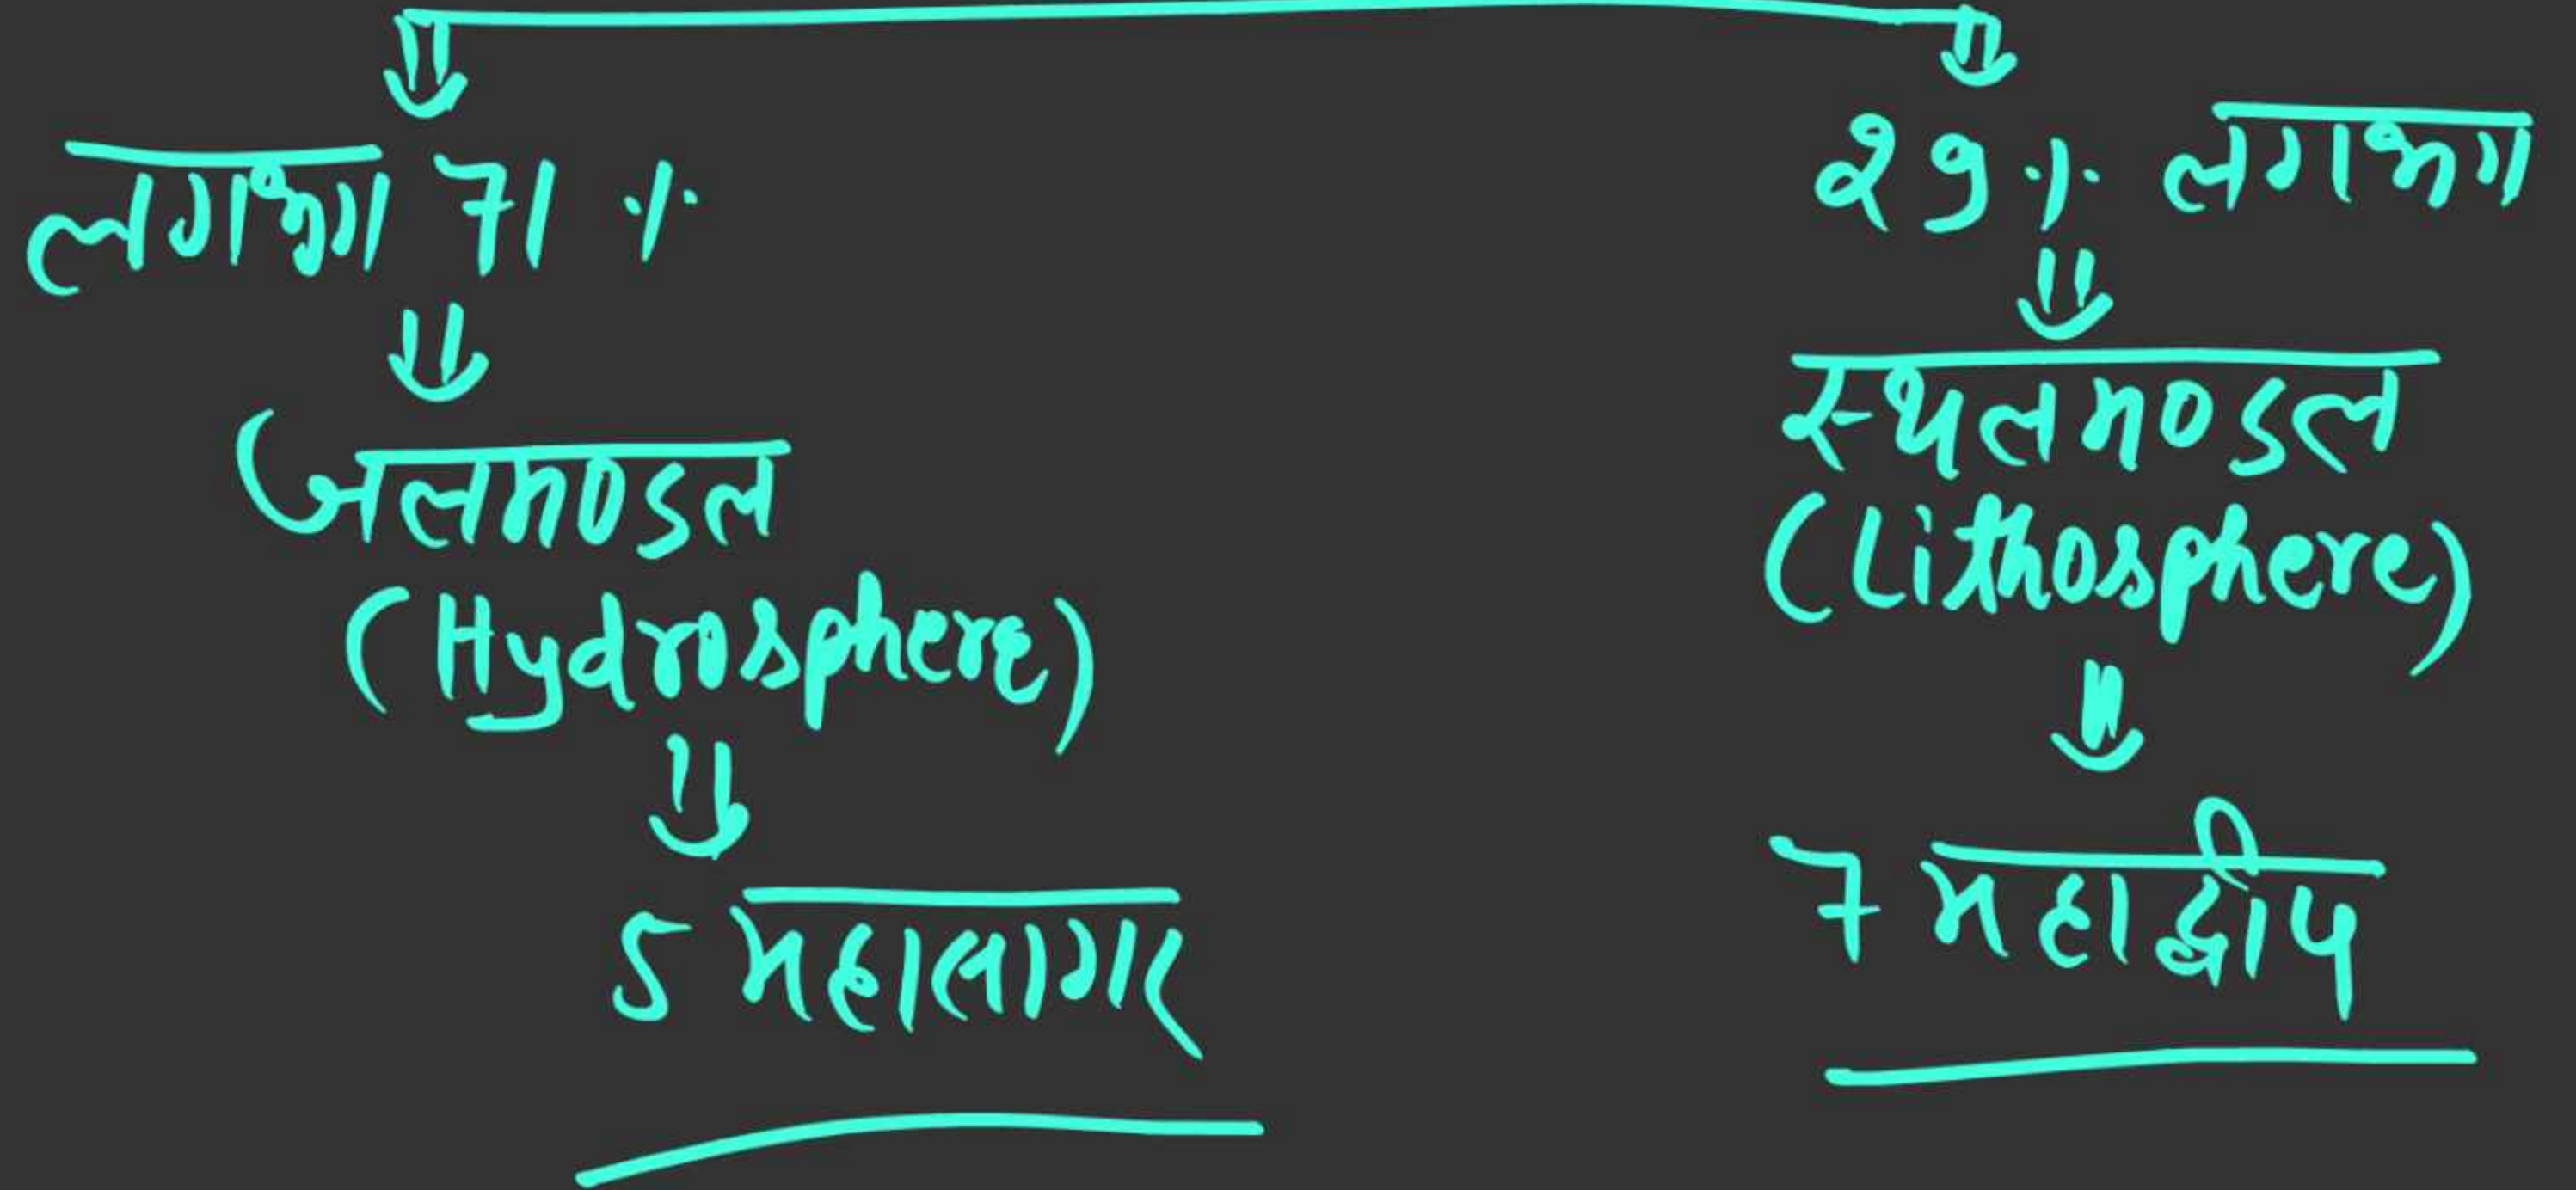 लगभग 71 %
जलमण्डल
(Hydrosphere)
5 महासागर
29 % लगभग
स्थलमण्डल
(Lithosphere)
7 महाद्वीप